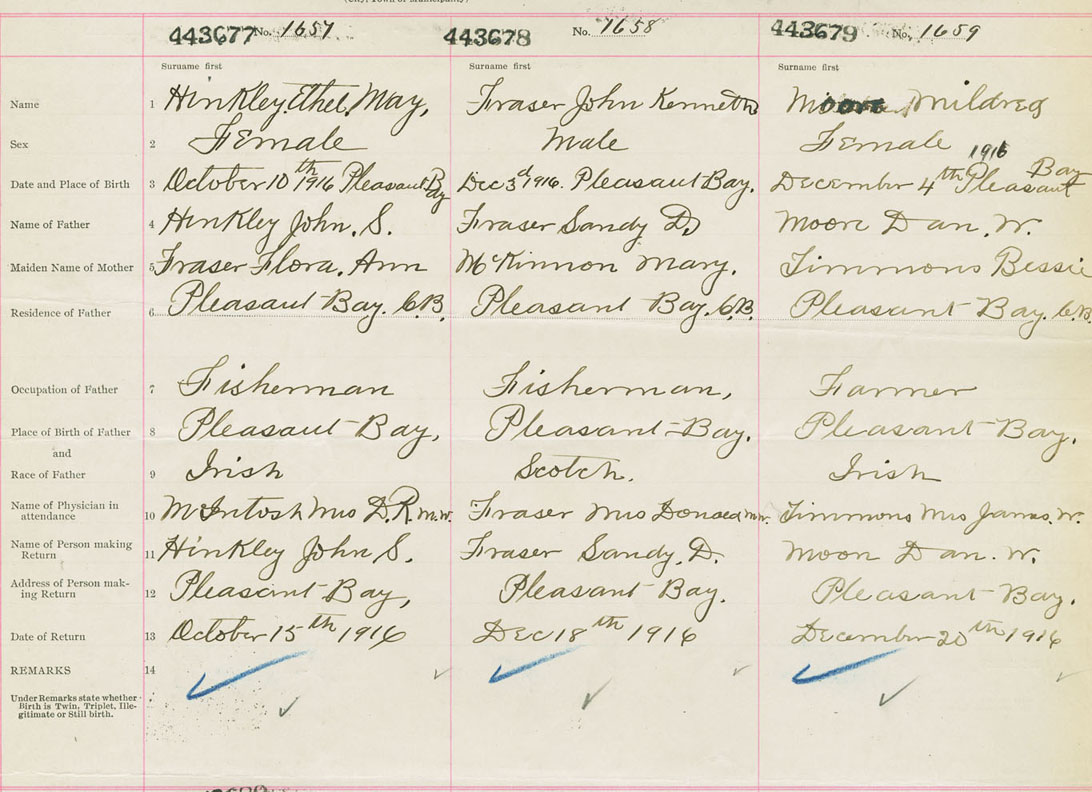 (City, Town or Municipality)
443677 No. 1657 443678 No. 1658 443679 No. 1659
Surname first Surname first Surname first
Name 1 Hinkley Ethel May, Fraser John Kenneth Moore Mildred
Sex 2 Female Male Female
Date and Place of Birth 3 October 10th 1916 Pleasant Bay Dec 3d 1916. Pleasant Bay. December 4th 1916 Pleasant Bay
Name of Father 4 Hinkley John. S. Fraser Sandy D. Moore Dan. W.
Maiden Name of Mother 5 Fraser Flora. Ann McKinnon Mary. Timmons Bessie
Residence of Father 6 Pleasant Bay. C.B. Pleasant Bay. C.B. Pleasant Bay. C.B.
Occupation of Father 7 Fisherman Fisherman, Farmer
Place of Birth of Father 8 Pleasant Bay, Pleasant Bay. Pleasant Bay.
and
Race of Father 9 Irish Scotch. Irish
Name of Physician in
attendance 10 McIntosh Mrs D.R. m.w. Fraser Mrs Donald m.w. Timmons Mrs James. W.
Name of Person making
Return 11 Hinkley John S. Fraser Sandy. D. Moore Dan. W.
Address of Person mak-
ing Return 12 Pleasant Bay, Pleasant Bay. Pleasant Bay.
Date of Return 13 October 15th 1916 Dec 18th 1916 December 20th 1916
REMARKS 14
Under Remarks state whether
Birth is Twin, Triplet, Ille-
gitimate or Still birth.